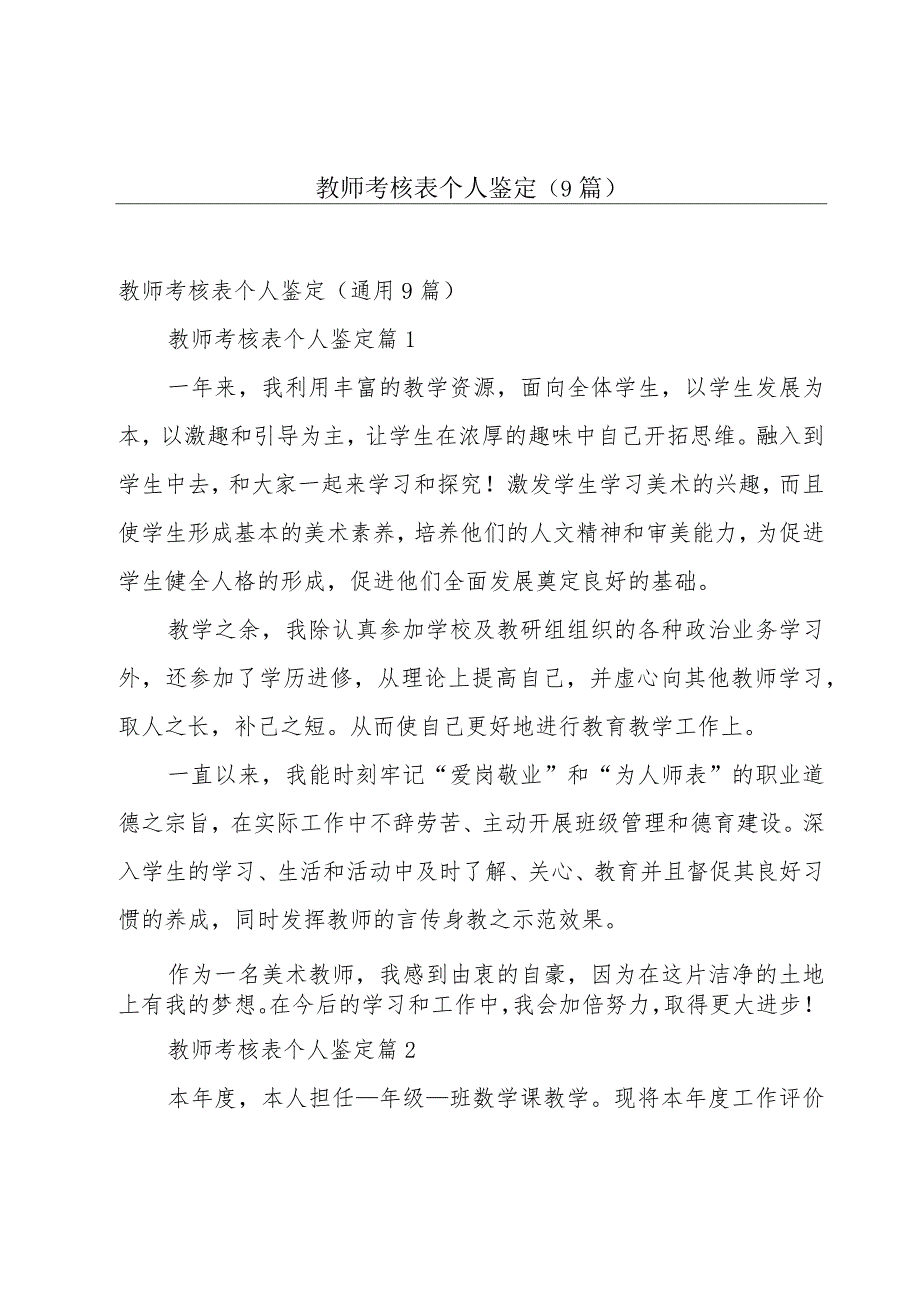 教师考核表个人鉴定（9篇）
教师考核表个人鉴定（通用9篇）
教师考核表个人鉴定篇1
一年来，我利用丰富的教学资源，面向全体学生，以学生发展为
本，以激趣和引导为主，让学生在浓厚的趣味中自己开拓思维。融入到
学生中去，和大家一起来学习和探究！激发学生学习美术的兴趣，而且
使学生形成基本的美术素养，培养他们的人文精神和审美能力，为促进
学生健全人格的形成，促进他们全面发展奠定良好的基础。
教学之余，我除认真参加学校及教研组组织的各种政治业务学习
外，还参加了学历进修，从理论上提高自己，并虚心向其他教师学习，
取人之长，补己之短。从而使自己更好地进行教育教学工作上。
一直以来，我能时刻牢记“爱岗敬业”和“为人师表”的职业道
德之宗旨，在实际工作中不辞劳苦、主动开展班级管理和德育建设。深
入学生的学习、生活和活动中及时了解、关心、教育并且督促其良好习
惯的养成，同时发挥教师的言传身教之示范效果。
作为一名美术教师，我感到由衷的自豪，因为在这片洁净的土地
上有我的梦想。在今后的学习和工作中，我会加倍努力，取得更大进步！
教师考核表个人鉴定篇2
本年度，本人担任—年级—班数学课教学。现将本年度工作评价